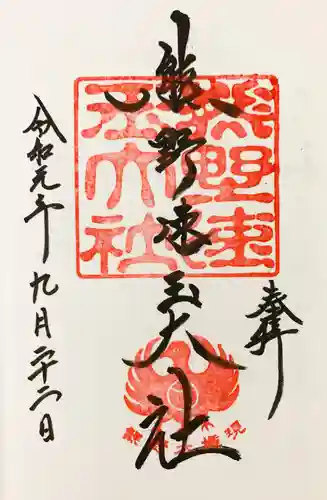 奉拝
熊野速玉大社
熊野速玉大社
令和元年九月二十二日